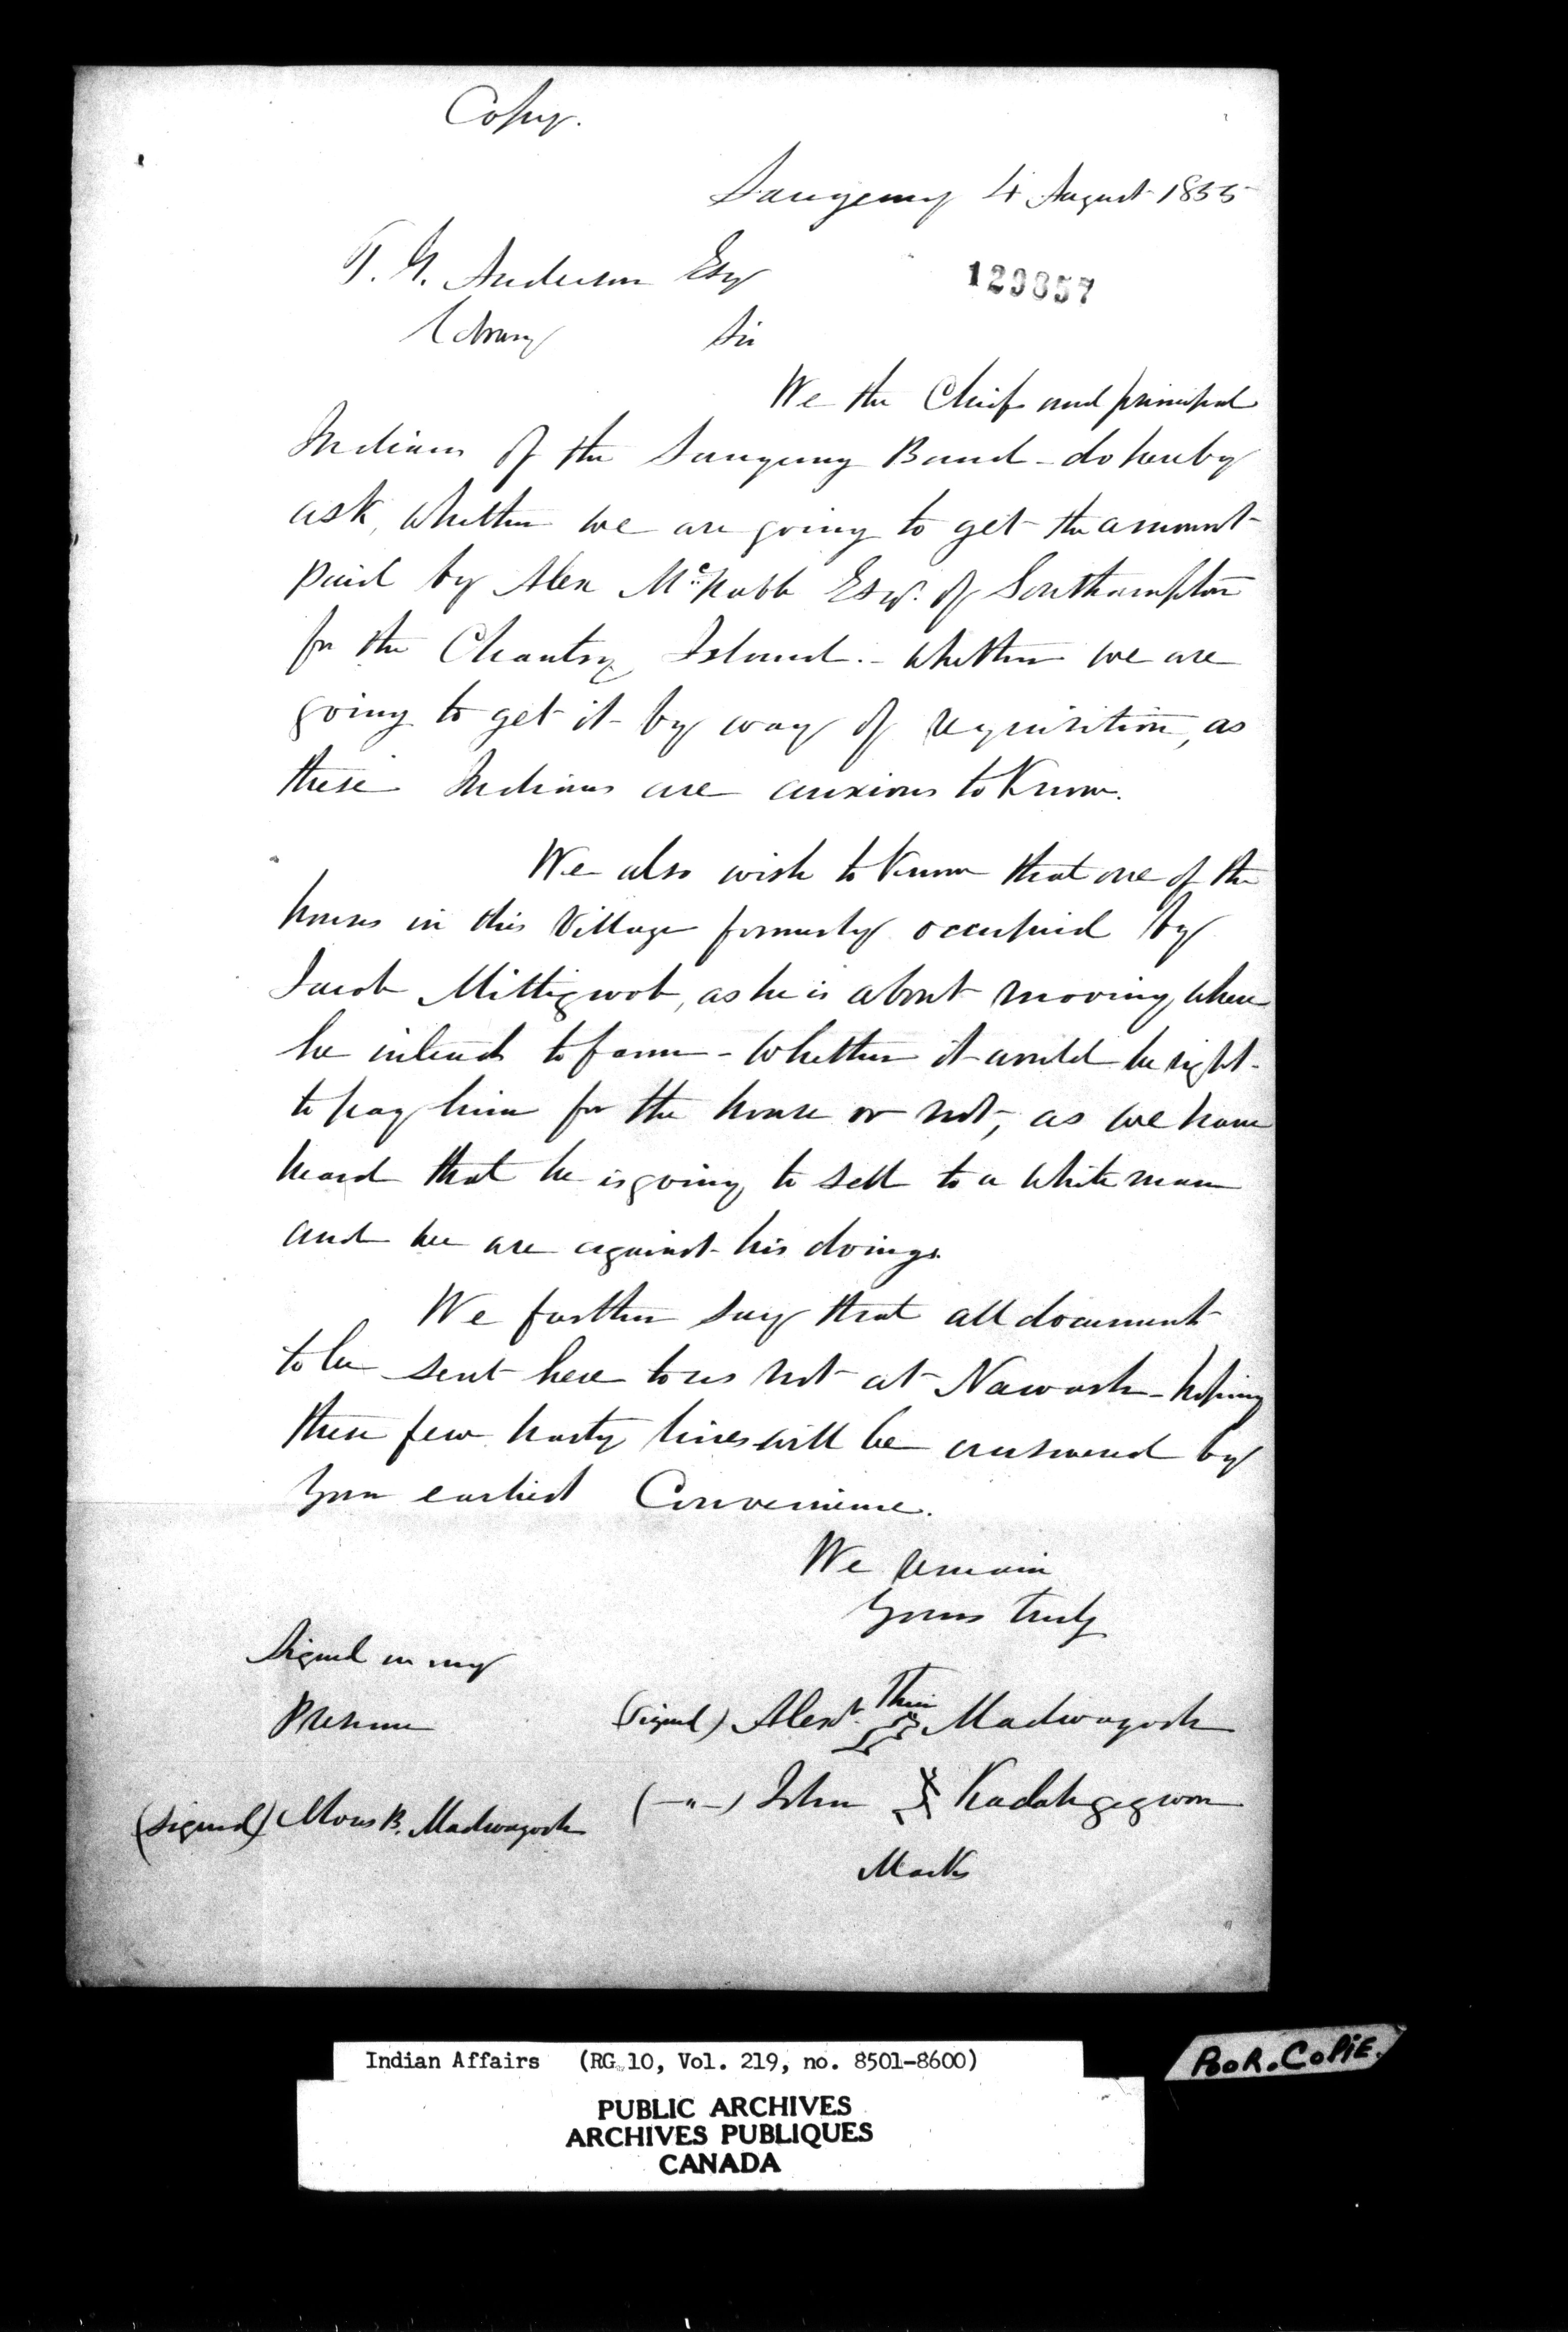 Copy.
Saugeeng 4 August 1855
T. G. Anderson Esq
129857
Cobourg Sir
We the Chiefs and principal
Indians of the Saugeeng Band - do hereby
ask, whether we are going to get the amount
paid by Alex McNabb Esqr. of Southampton
for the Chantry Island. - Whether we are
going to get it by way of requisition, as
these Indians are anxious to Know.
We also wish to Know that one of the
houses in this Village formerly occupied by
Jacob Mittigwob, as he is about moving where
he intends to farm - Whether it would be right
to pay him for the house or not, as we have
heard that he is going to sell to a White man
and we are against his doings.
We further say that all document
to be sent here to us not at Nawash - hoping
these few hasty lines will be answered by
your earliest Convenience.
We remain
Yours truly
Signed in my
Presence
(Signed) Alexr. Their Madwayosh
(Signed) Moses B. Madwayosh
(-"-) John Kadahgegwon
Marks
Indian Affairs (RG 10, Vol. 219, no. 8501-8600)
POOR.COPIE.
PUBLIC ARCHIVES
ARCHIVES PUBLIQUES
CANADA